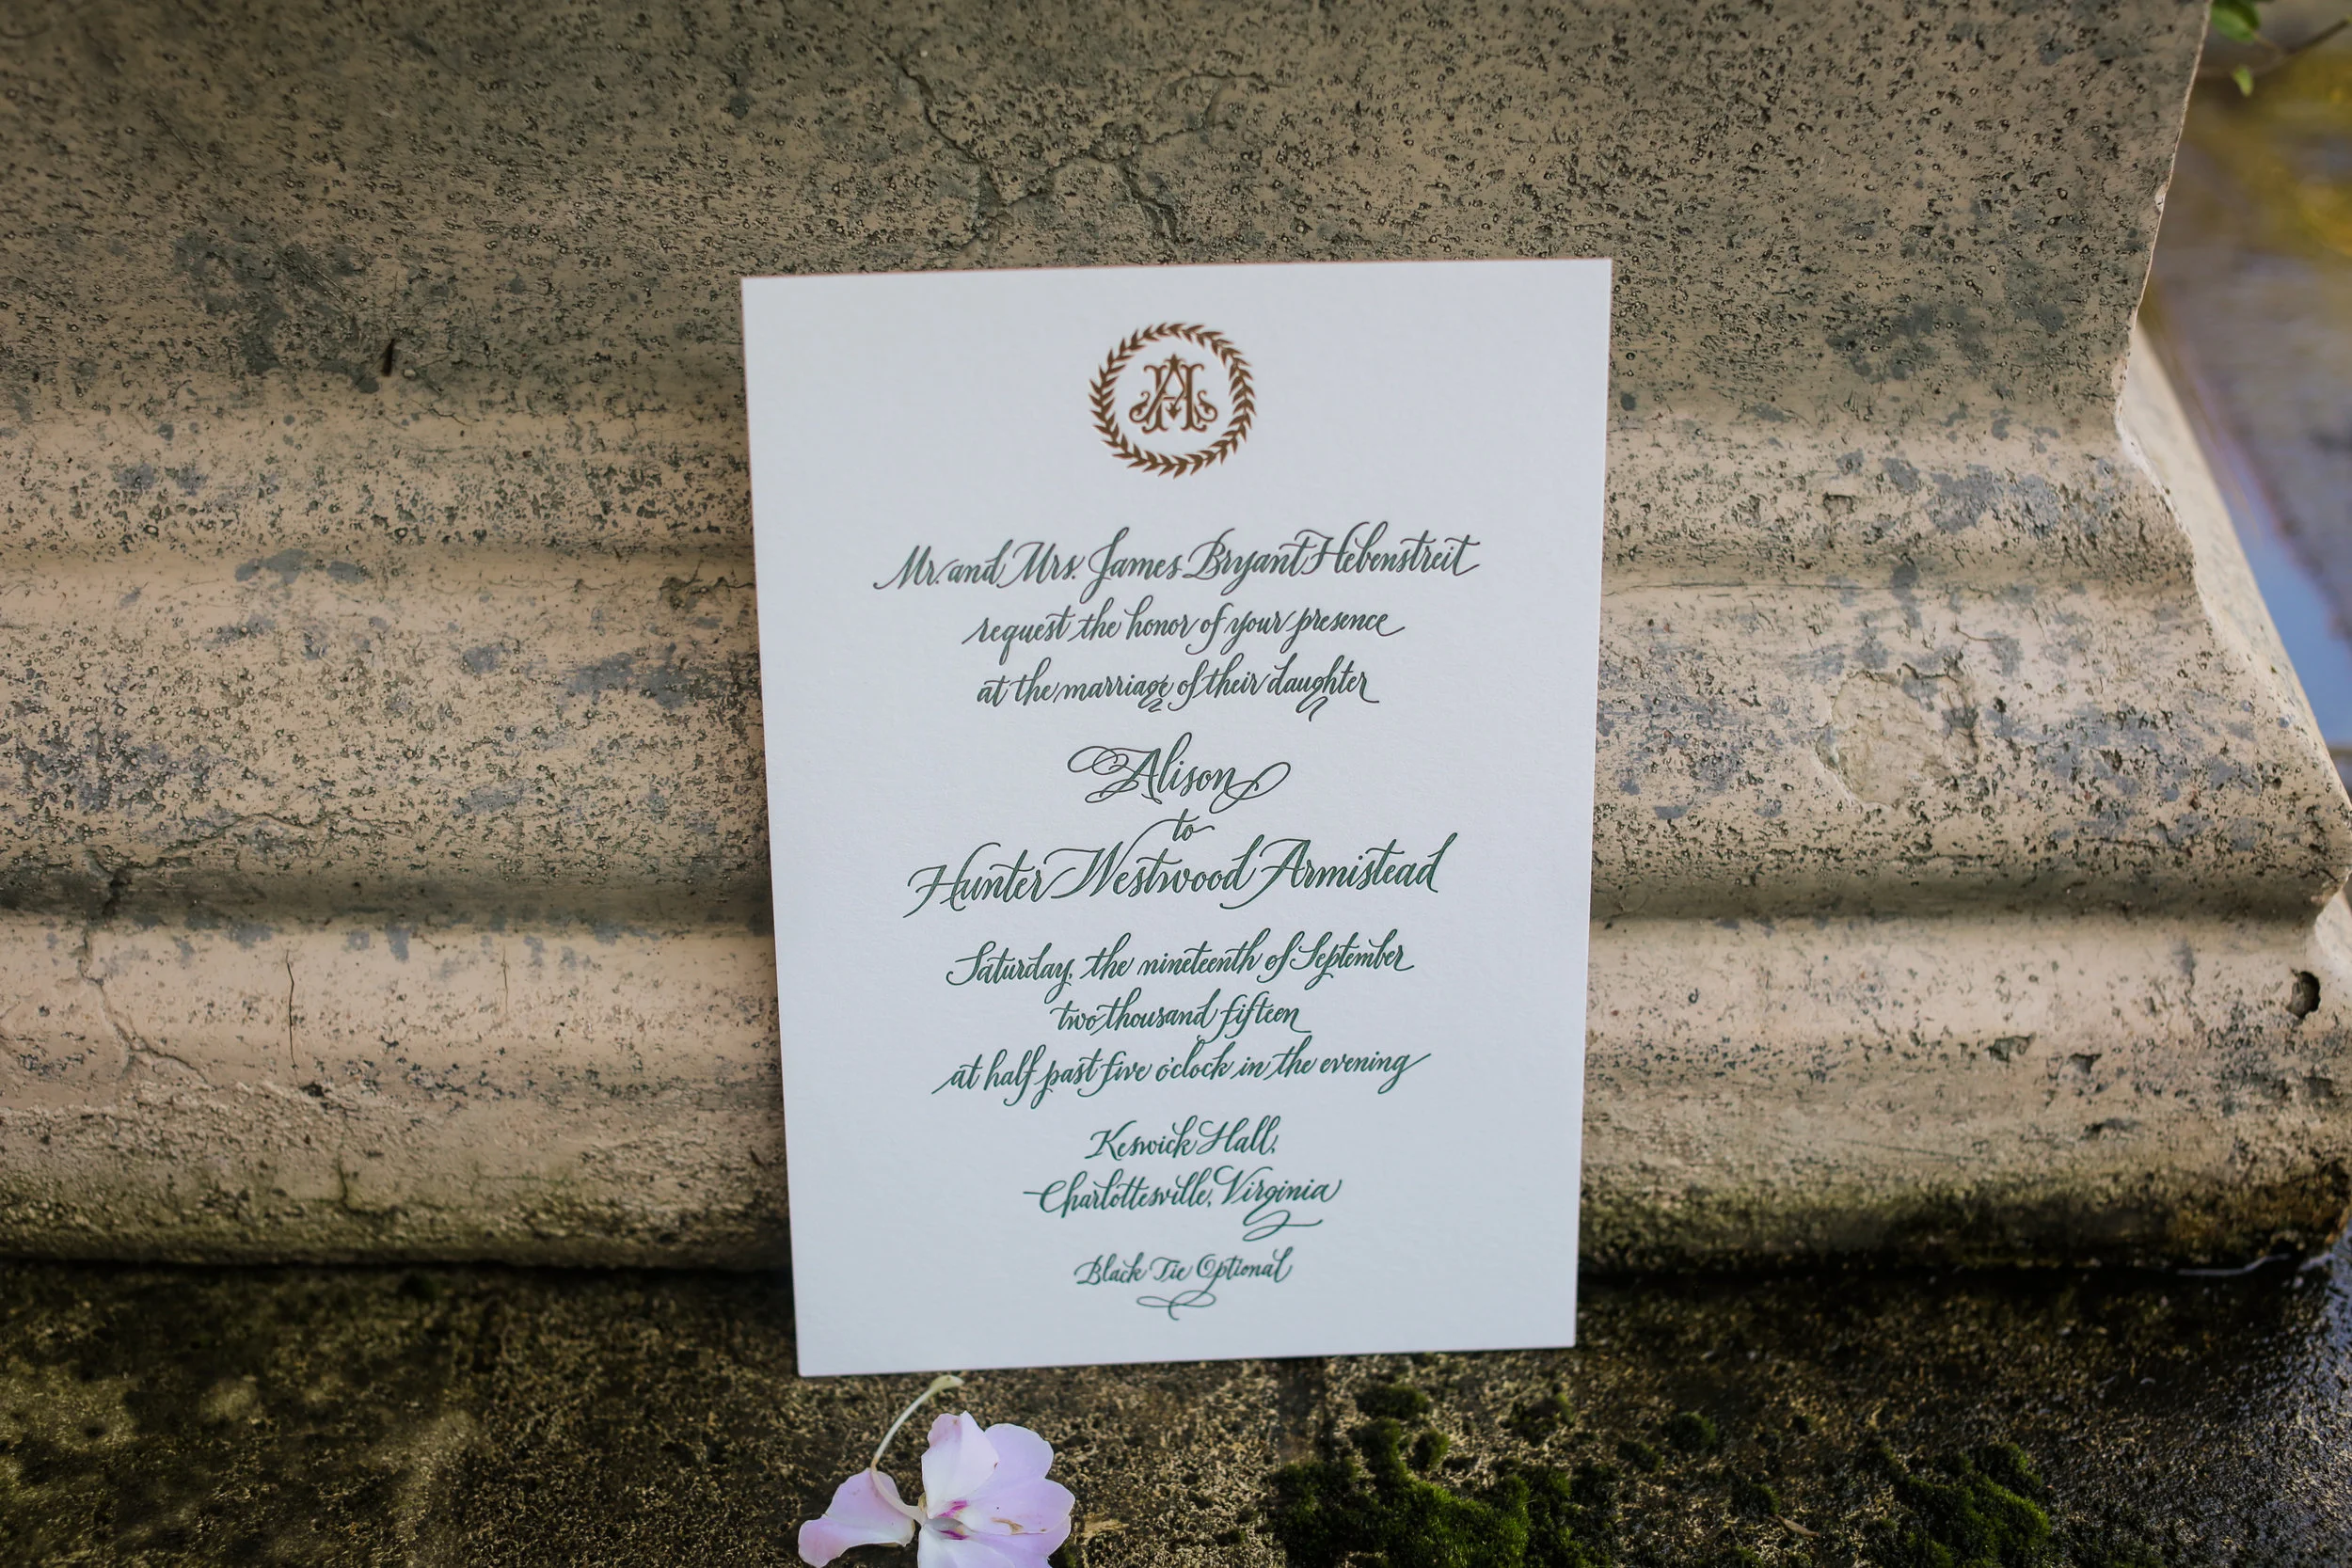 Mr. and Mrs. James Bryant Hebenstreit
request the honor of your presence
at the marriage of their daughter
Alison
to
Hunter Westwood Armistead
Saturday, the nineteenth of September
two thousand fifteen
at half past five o'clock in the evening
Keswick Hall,
Charlottesville, Virginia
Black Tie Optional